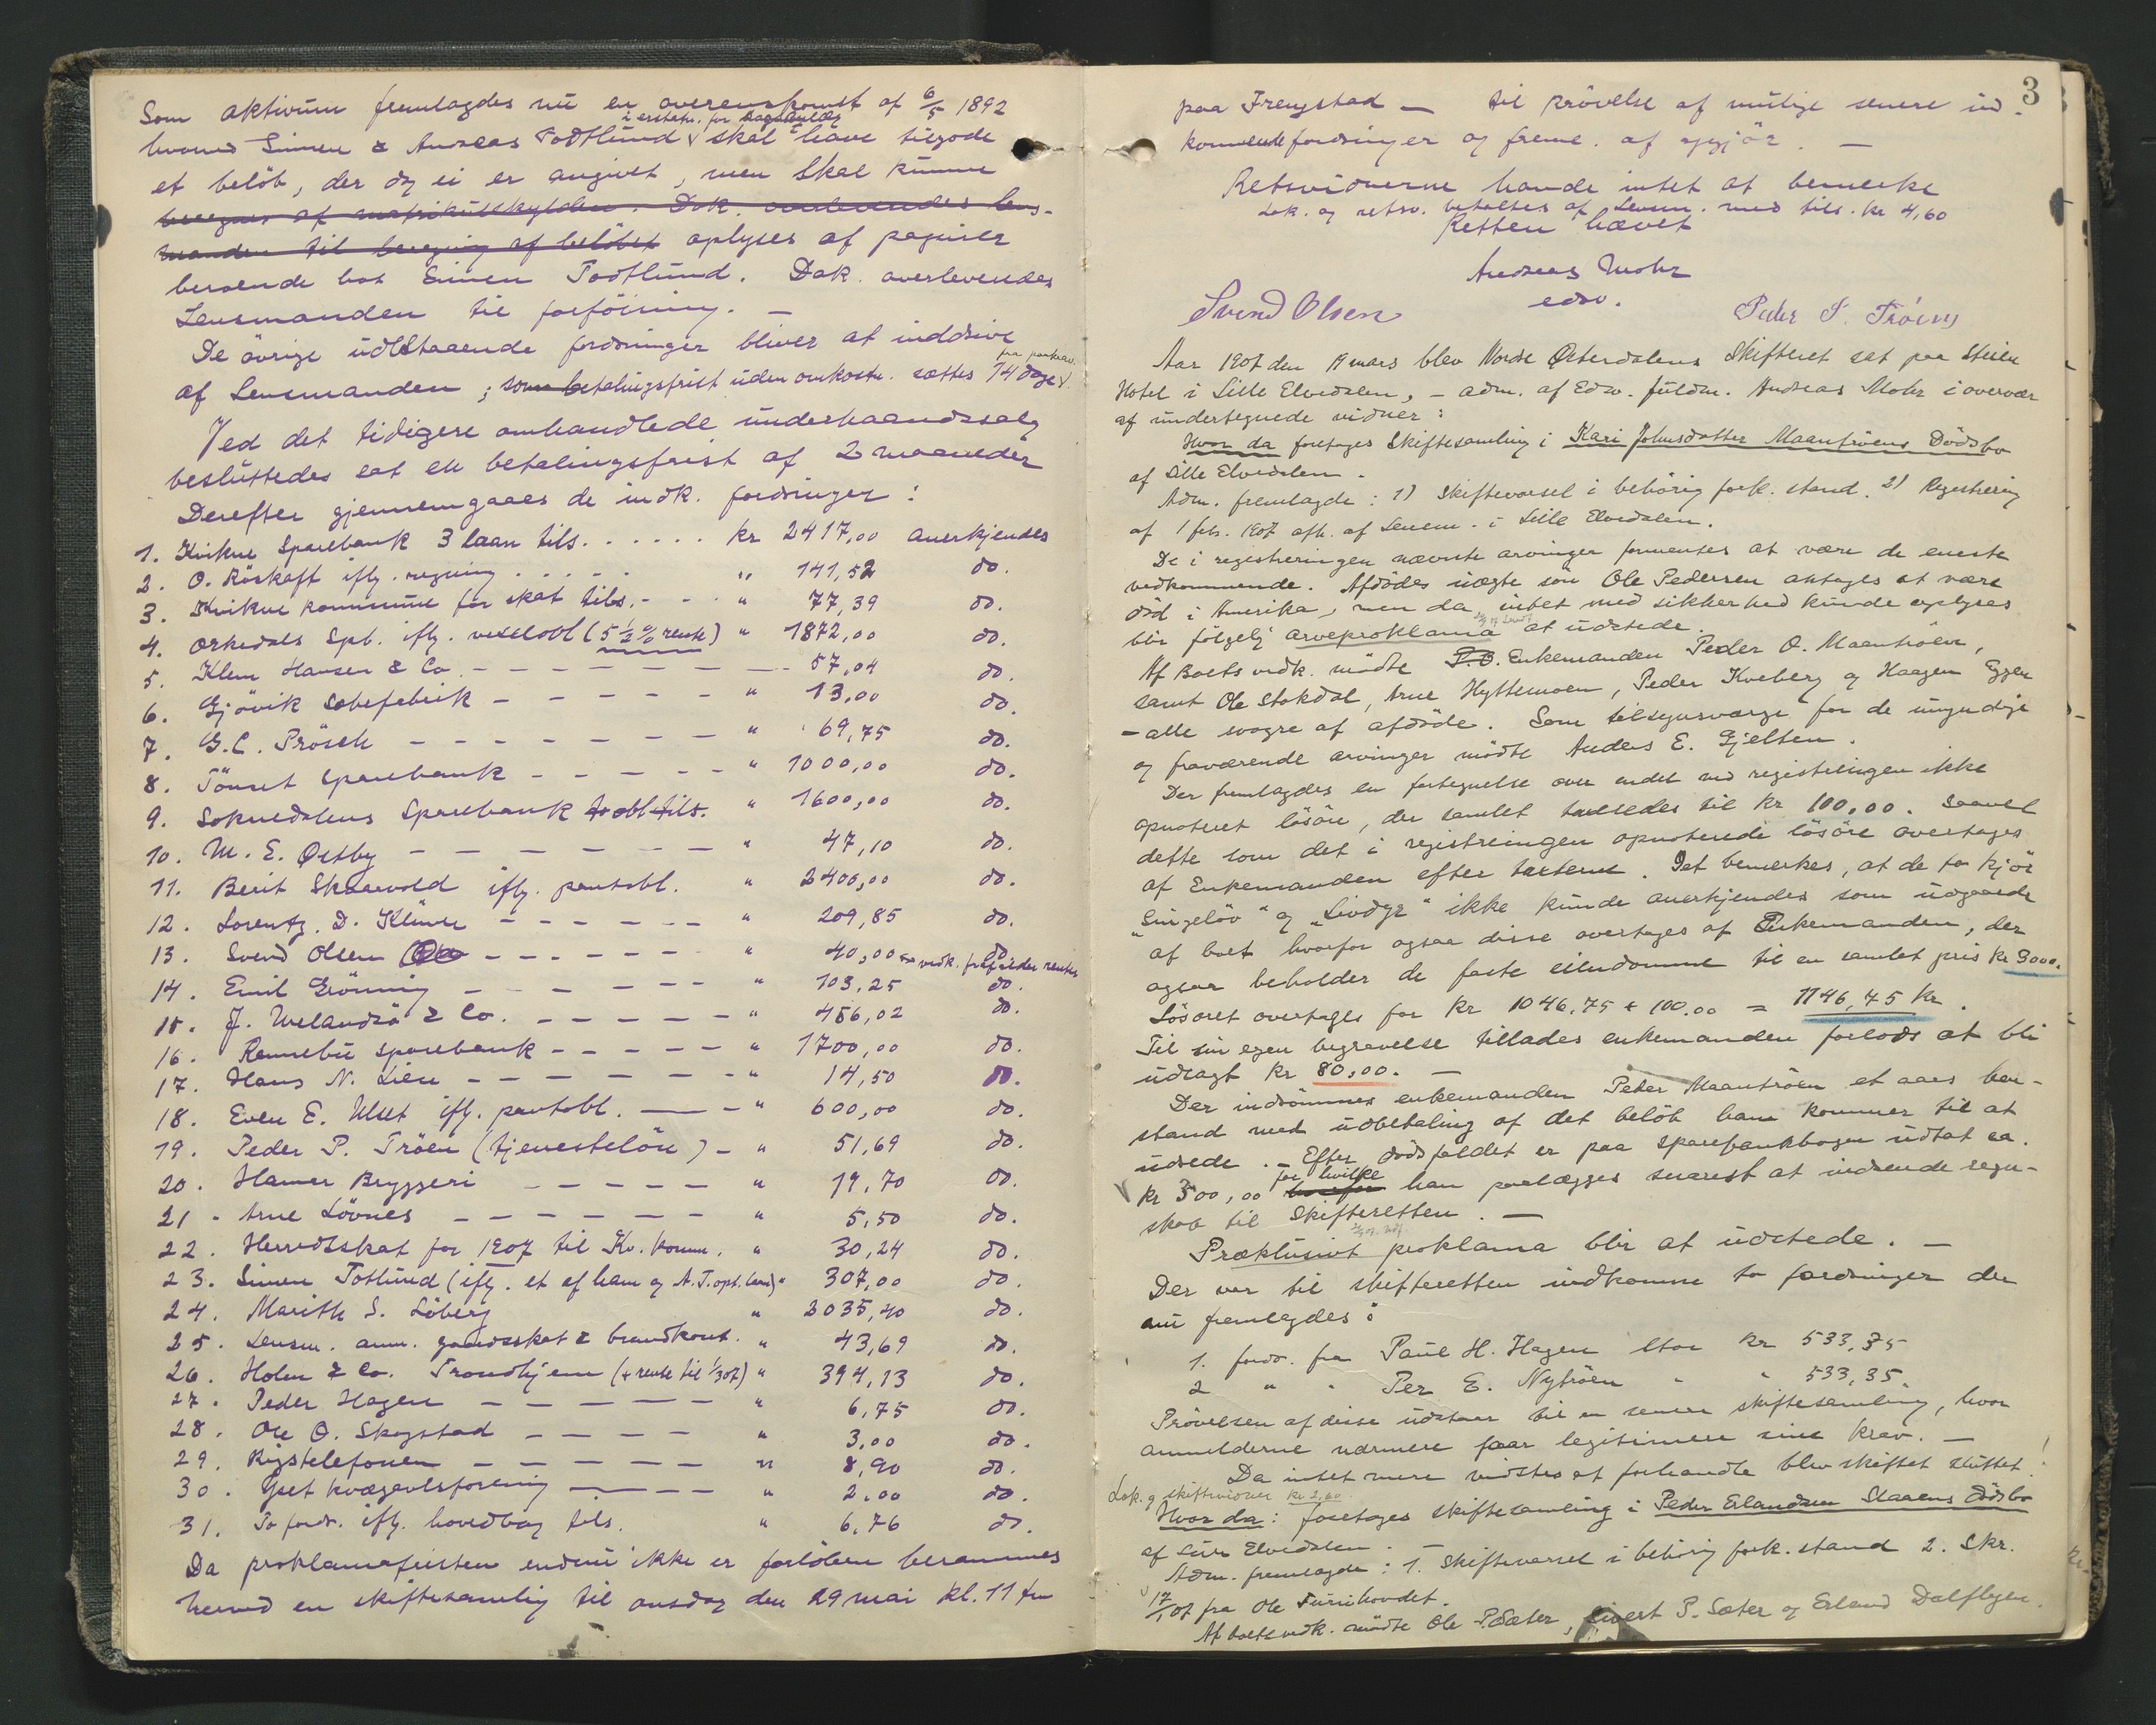 Som aktivum fremlagdes nu en overenskomst af 6/5 1892
i erstatn. for
hvorved Simen & Andreas Todtlund skal have tilgode
et beløb, der dog ei er angivet, men skal kunne
beregnes af matrikulskylden. Dok. overlevendes lens-
manden til beregning af beløbet oplyses af papirer
beroende hos Simen Todtlund. Dok. overlevendes
Lensmanden til forføining. —
De øvrige udestaaende fordringer bliver at inddrive
af Lensmanden; som betalingsfrist uden omkostn. sættes 14 dage
fra paakrav.
Ved det tidigere omhandlede underhaandssalg
besluttedes sat en betalingsfrist af 2 maaneder
Derefter gjennemgaaes de indk. fordringer:
1. Kvikne Sparebank 3 laan tils. . . . . . kr 2417,00 anerkjendes
2. O. Röskaft iflg. regning . . . . . " 141,52 do.
3. Kvikne kommune for skat tils. - - - " 77,39 do.
4. Orkedals Spb. iflg. vexelobl (5 1/2 % rente) " 1872,00 do.
5. Klem Hansen & Co. - - - - - - - 57,04 do.
6. Gjövik Sæbefabrik - - - - - " 13,00 do.
7. G.C. Prösch - - - - - - - " 69,75 do.
8. Tönset Sparebank - - - - - " 1000,00 do.
9. Soknedalens Sparebank to obl. tils. " 1600,00 do.
10. M. E. Østby - - - - - - - " 47,10 do.
11. Berit Skaarvold iflg. pantobl. " 2400,00 do.
12. Lorentz D. Klüwer - - - - - - " 209,85 do.
13. Svend Olsen - - - - - - " 40,00 do
vedk. frafalder renter
14. Emil Grönning - - - - - - - " 103,25 do.
15. J. Melandsö & Co. - - - - - " 456,02 do.
16. Rennebu sparebank - - - - - " 1700,00 do.
17. Hans N. Lien - - - - - - - " 14,50 do.
18. Even E. Ulset iflg. pantobl. — - " 600,00 do.
19. Peder P. Tröen (tjenesteløn) - " 51,69 do.
20. Hamar Bryggeri - - - - - " 19,70 do.
21. Arne Lövnes - - - - - - - " 5,50 do.
22. Herredsskat for 1907 til Kv. komm. " 30,24 do.
23. Simen Totlund (iflg. et af ham og A. T. opt. laan) " 307,00 do.
24. Marith S. Löberg " 3035,40 do.
25. Lensm. anm. grundskat & brandkont. " 43,69 do.
26. Holm & Co. Trondhjem (+ rente til 1/3 07) " 394,13 do.
27. Peder Hagen - - - - - - " 6,75 do.
28. Ole O. Skogstad - - - - " 3,00 do.
29. Rigstelefonen - - - - - - " 8,90 do.
30. Yset kvægavlsforening — - - " 2,00 do.
31. To fordr. iflg. hovedbog tils. " 6,76 do.
Da proklamafristen endnu ikke er forløben berammes
herved en skiftesamling til onsdag den 29 mai kl. 11 fm
3
paa Frengstad — til prøvelse af mulige senere ind-
kommende fordringer og freme. af opgjör. —
Retsvidnerne havde intet at bemerke
Lok. og retsv. betaltes af Lensm. med tils. kr 4,60
Retten hævet
Andreas Mohr
edsv.
Svend Olsen Peder P. Tröen
Aar 1907 den 19 mars blev Nordre Østerdalens Skifteret sat paa Steien
Hotel i Lille Elvedalen, - adm. af Edsv. fuldm. Andreas Mohr i overvær
af undertegnede vidner:
Hvor da foretoges Skiftesamling i Kari Johnsdatter Maantröens Dödsbo
af Lille Elvedalen.
Adm. fremlagde: 1) Skiftevarsel i behörig fork. stand. 2) Registrering
af 1 feb. 1907 afh. af Lensm. i Lille Elvedalen.
De i registreringen nævnte arvinger formentes at være de eneste
vedkommende. Afdödes uægte sön Ole Pedersen antages at være
död i Amerika, men da intet med sikkerhed kunde oplyses
blir følgelig arveproklama at udstede.
Af Boets vedk. mödte P.O. Enkemanden Peder O. Maantröen,
samt Ole Stokdal, Arne Hyttemoen, Peder Kveberg og Haagen Eggen
- alle svogre af afdöde. Som tilsynsværge for de umyndige
og fraværende arvinger mödte Anders E. Gjelten.
Der fremlagdes en fortegnelse over endel ved registreringen ikke
opnoteret lösöre, der samlet taxsedes til kr 100,00. Saavel
dette som det i registreringen opnoterede lösöre overtages
af Enkemanden efter taxterne. Det bemerkes, at de to kjör
"Singelöv" og "Livdyr" ikke kunde anerkjendes som udgaaede
af boet hvorfor ogsaa disse overtages af Enkemanden, der
ogsaa beholder de faste eiendomme til en samlet pris kr 3000.
Lösöret overtages for kr 1046,75 + 100,00 = 1146,75 kr.
Til sin egen begravelse tillades enkemanden forlods at bli
udlagt kr 80,00. —
Der indrömmes enkemanden Peder Maantröen et aars hen-
stand med udbetaling af det belöb han kommer til at
udrede. - Efter dödsfaldet er paa sparebankbogen udtat ca.
kr 300,00 hvorfor for hvilke han paalægges snarest at indsende regn-
skab til Skifteretten. —
Præklusivt proklama blir at udstede. —
Der var til skifteretten indkomne to fordringer der
nu fremlagdes:
1. fordr. fra Paul H. Hagen stor kr 533,35
2 " " Per E. Nytröen " " 533,35.
Prövelsen af disse udstaar til en senere skiftesamling, hvor
anmelderne nærmere faar legitimere sine krav. —
Da intet mere vidstes at forhandle blev skiftet sluttet!
Lok. og skiftevidner kr 2,60.
Hvor da: foretoges skiftesamling i Peder Erlandsen Staaens dödsbo
af Lille Elvedalen. —
Adm. fremlagde: 1. Skiftevarsel i behörig fork. stand 2. Skr.
17/1 07 fra Ole Furuhovdet.
Af boets vedk. mödte Ole P. Sæter, Sivert P. Sæter og Erland Dalflyen.